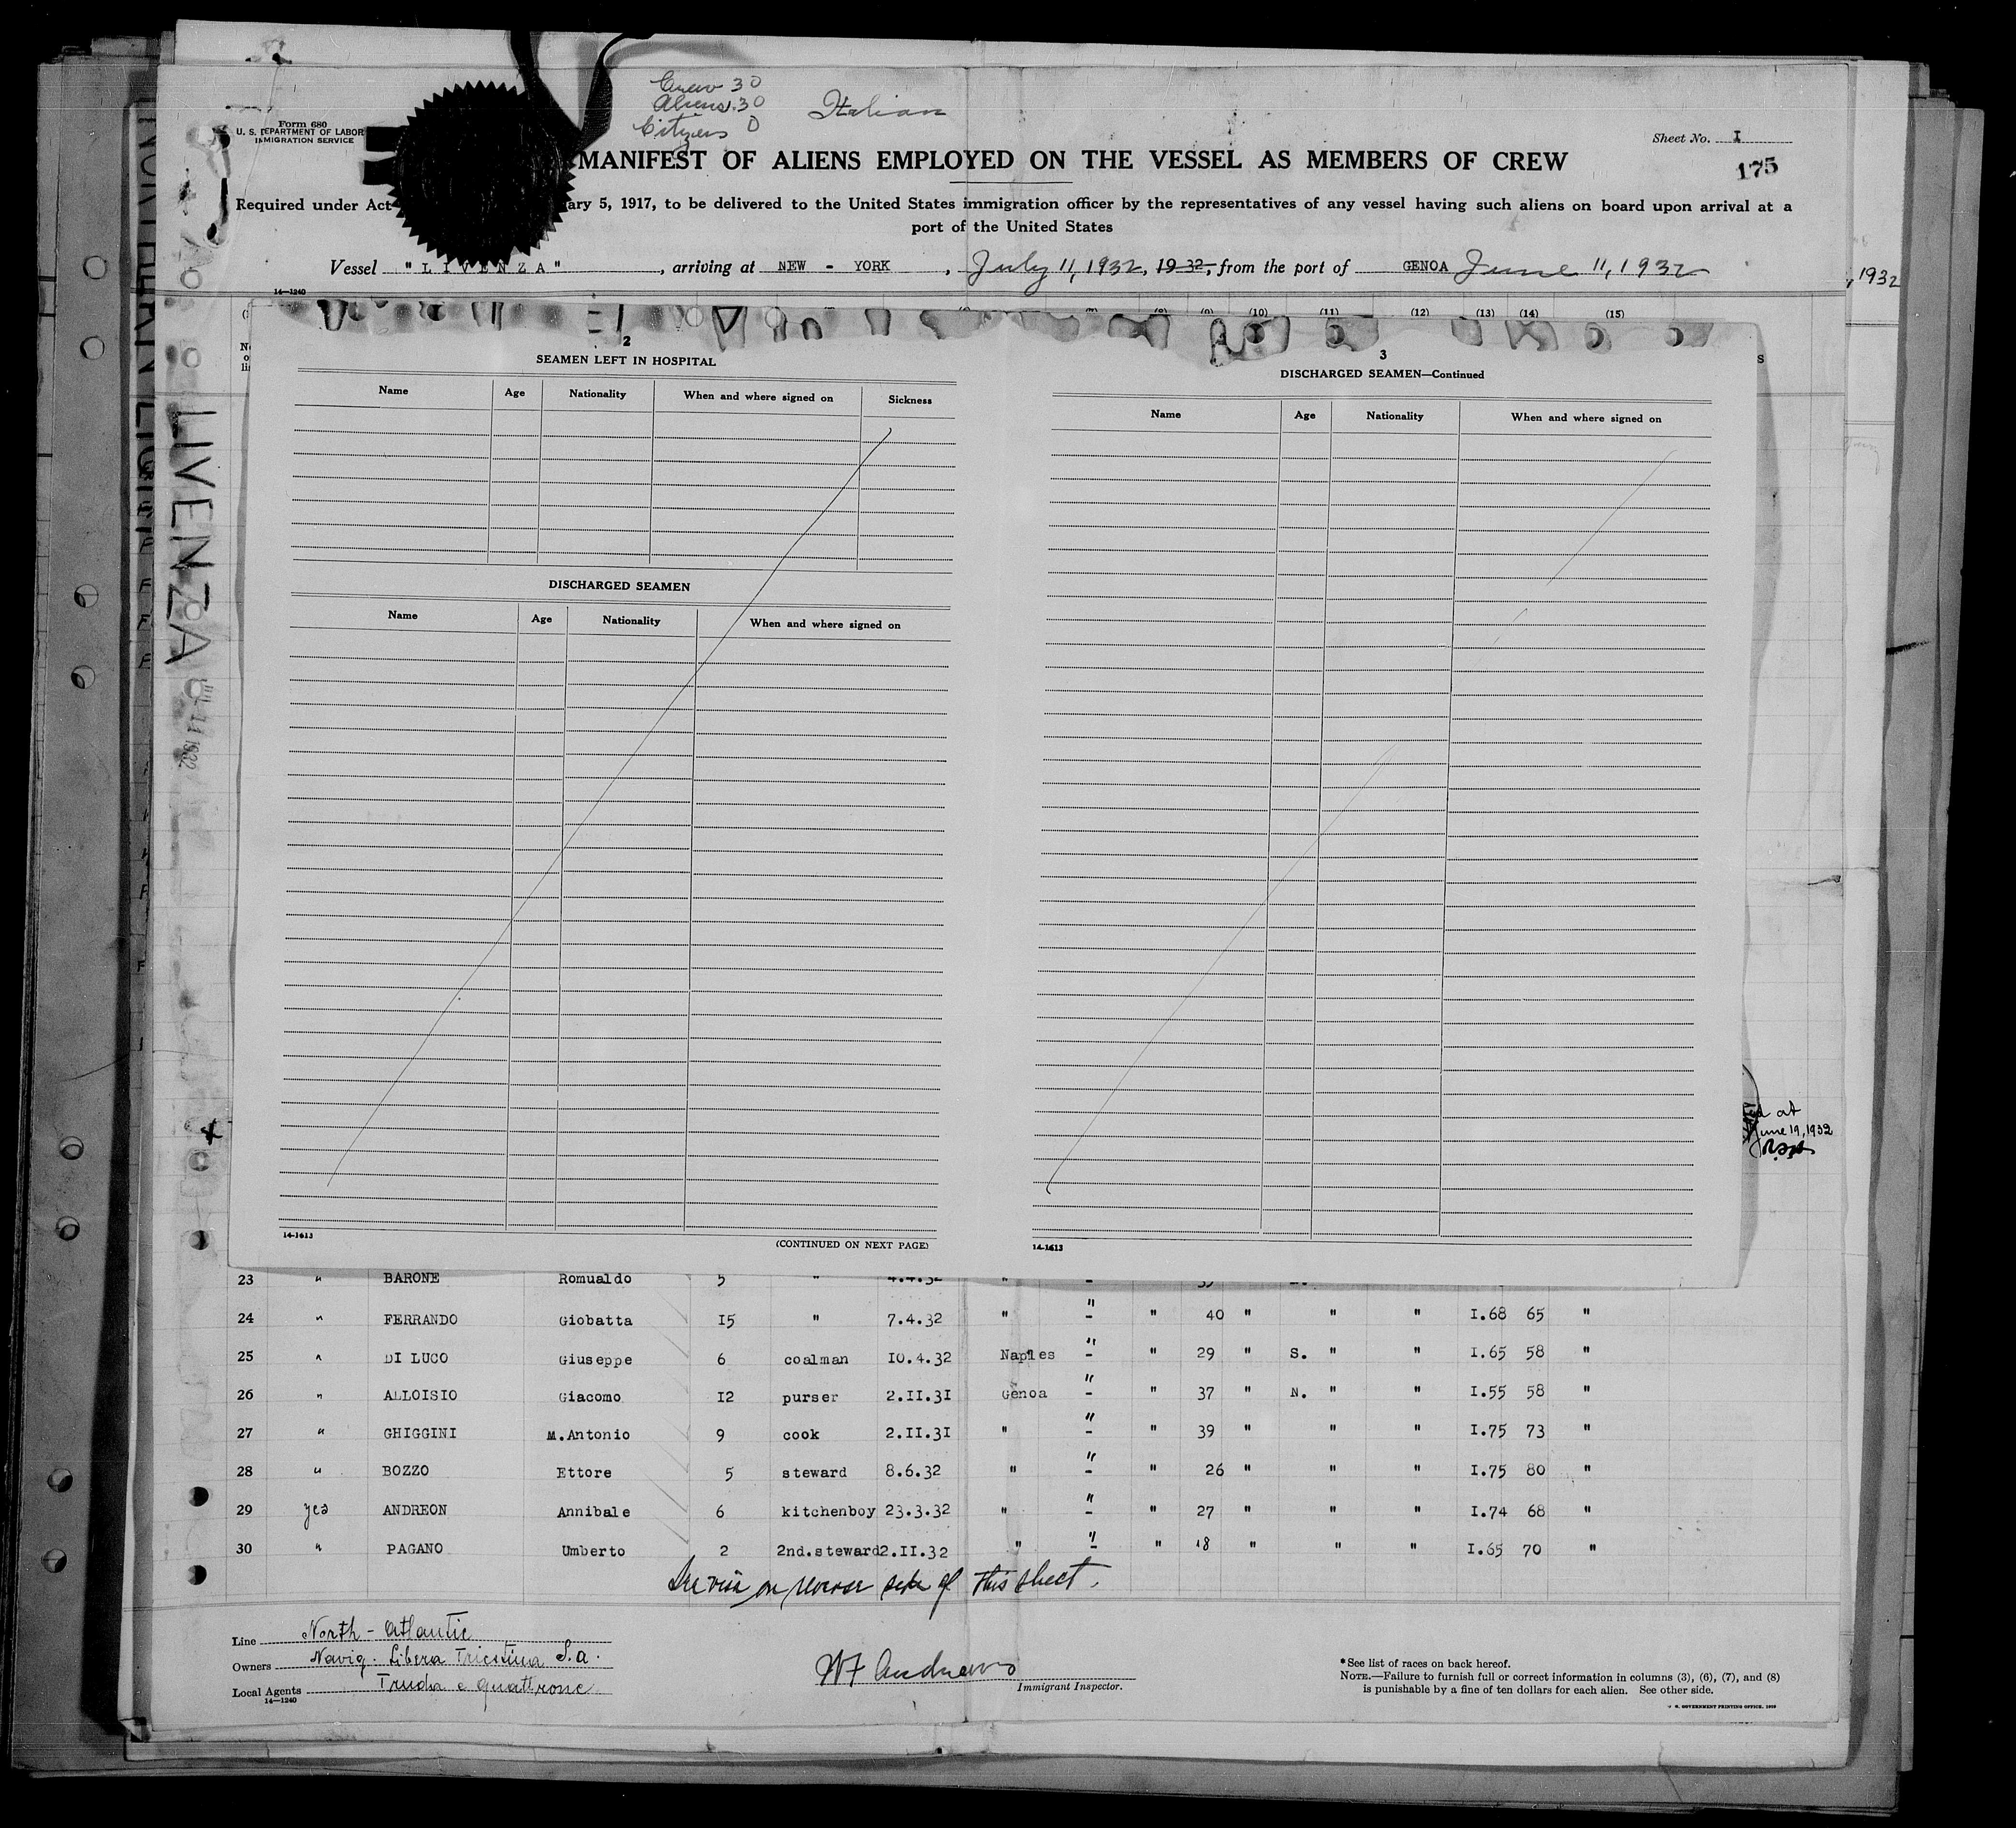 Crew 30
Aliens 30
Citizens 0
Italian
Form 680
U. S. DEPARTMENT OF LABOR
IMMIGRATION SERVICE
Sheet No. I
175
MANIFEST OF ALIENS EMPLOYED ON THE VESSEL AS MEMBERS OF CREW
Required under Act ary 5, 1917, to be delivered to the United States immigration officer by the representatives of any vessel having such aliens on board upon arrival at a
port of the United States
Vessel "LIVENZA", arriving at NEW - YORK, July 11, 1932, 1932, from the port of GENOA June 11, 1932
, 1932
14—1240
(10) (11) (12) (13) (14) (15)
LIVENZA
2
SEAMEN LEFT IN HOSPITAL
Name Age Nationality When and where signed on Sickness
DISCHARGED SEAMEN
Name Age Nationality When and where signed on
14-1613
(CONTINUED ON NEXT PAGE)
3
DISCHARGED SEAMEN—Continued
Name Age Nationality When and where signed on
14-1613
at
June 19, 1932
23 " BARONE Romualdo 5 " 4.4.32 "
24 " FERRANDO Giobatta 15 " 7.4.32 " " - " 40 " " " I.68 65 "
25 " DI LUCO Giuseppe 6 coalman IO.4.32 Naples " - " 29 " S. " " I.65 58 "
26 " ALLOISIO Giacomo 12 purser 2.II.3I Genoa " - " 37 " N. " " I.55 58 "
27 " GHIGGINI M.Antonio 9 cook 2.II.3I " " - " 39 " " " I.75 73 "
28 " BOZZO Ettore 5 steward 8.6.32 " " - " 26 " " " I.75 80 "
29 yes ANDREON Annibale 6 kitchenboy 23.3.32 " " - " 27 " " " I.74 68 "
30 " PAGANO Umberto 2 2nd.steward 2.II.32 " " - " 18 " " " I.65 70 "
See visa on reverse side of this sheet.
Line North - Atlantic
Owners Navig. Libera Triestina S.a.
Local Agents Truda e Quattrone
14—1240
WF Andrews
Immigrant Inspector.
*See list of races on back hereof.
NOTE.—Failure to furnish full or correct information in columns (3), (6), (7), and (8)
is punishable by a fine of ten dollars for each alien. See other side.
GOVERNMENT PRINTING OFFICE